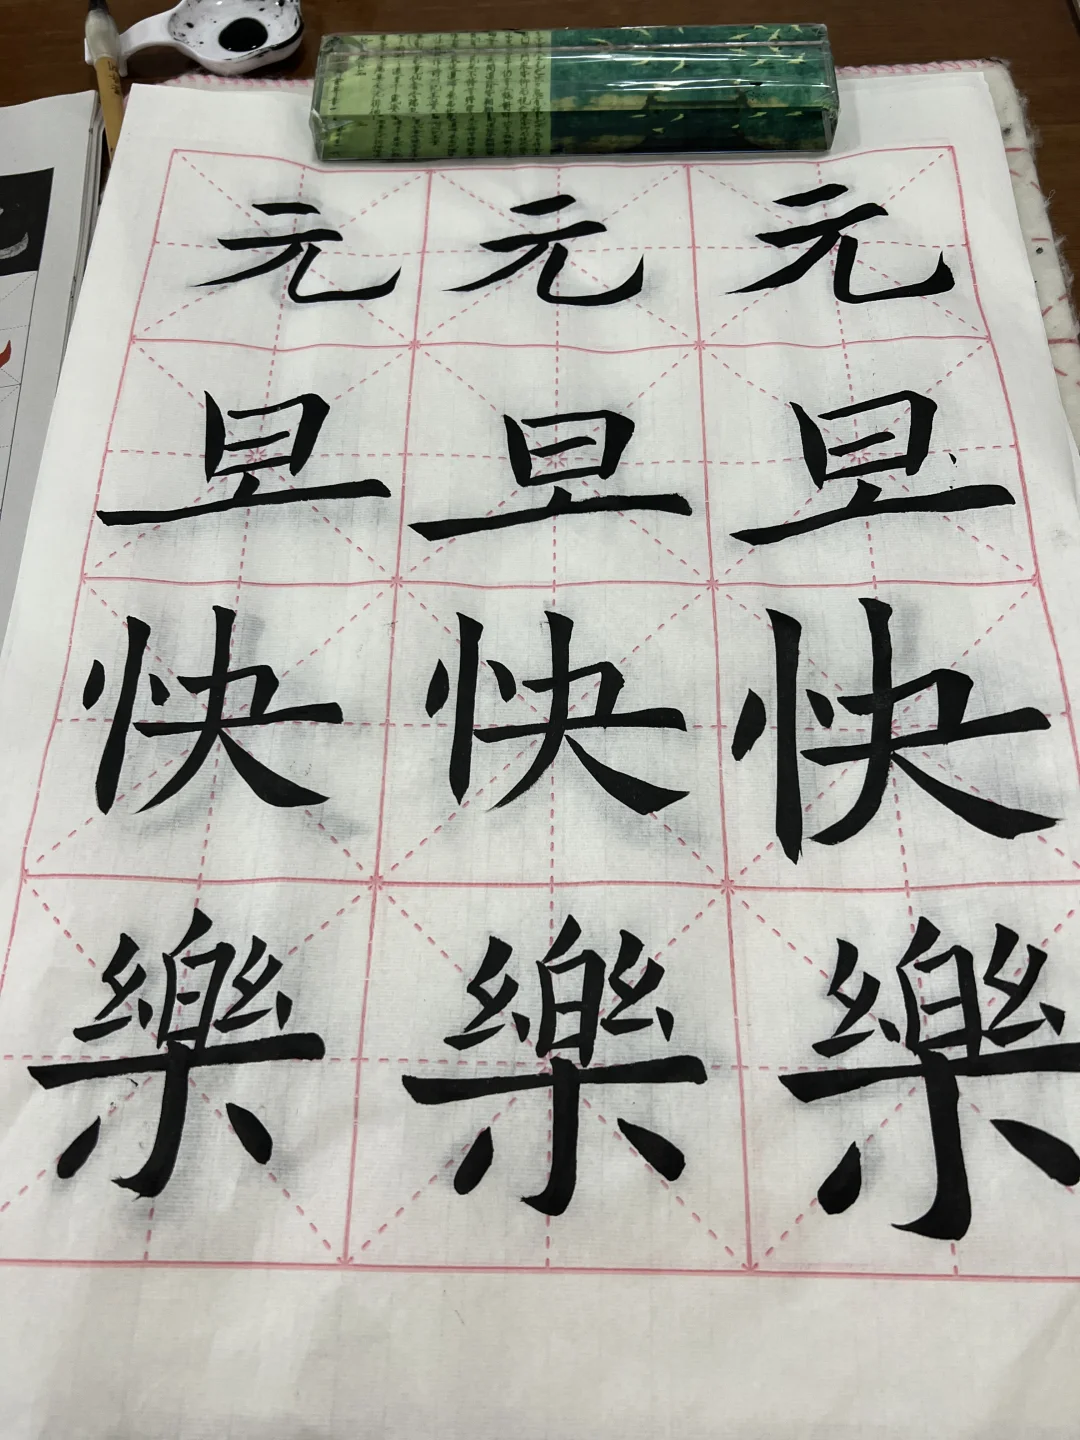 元 元 元
旦 旦 旦
快 快 快
樂 樂 樂